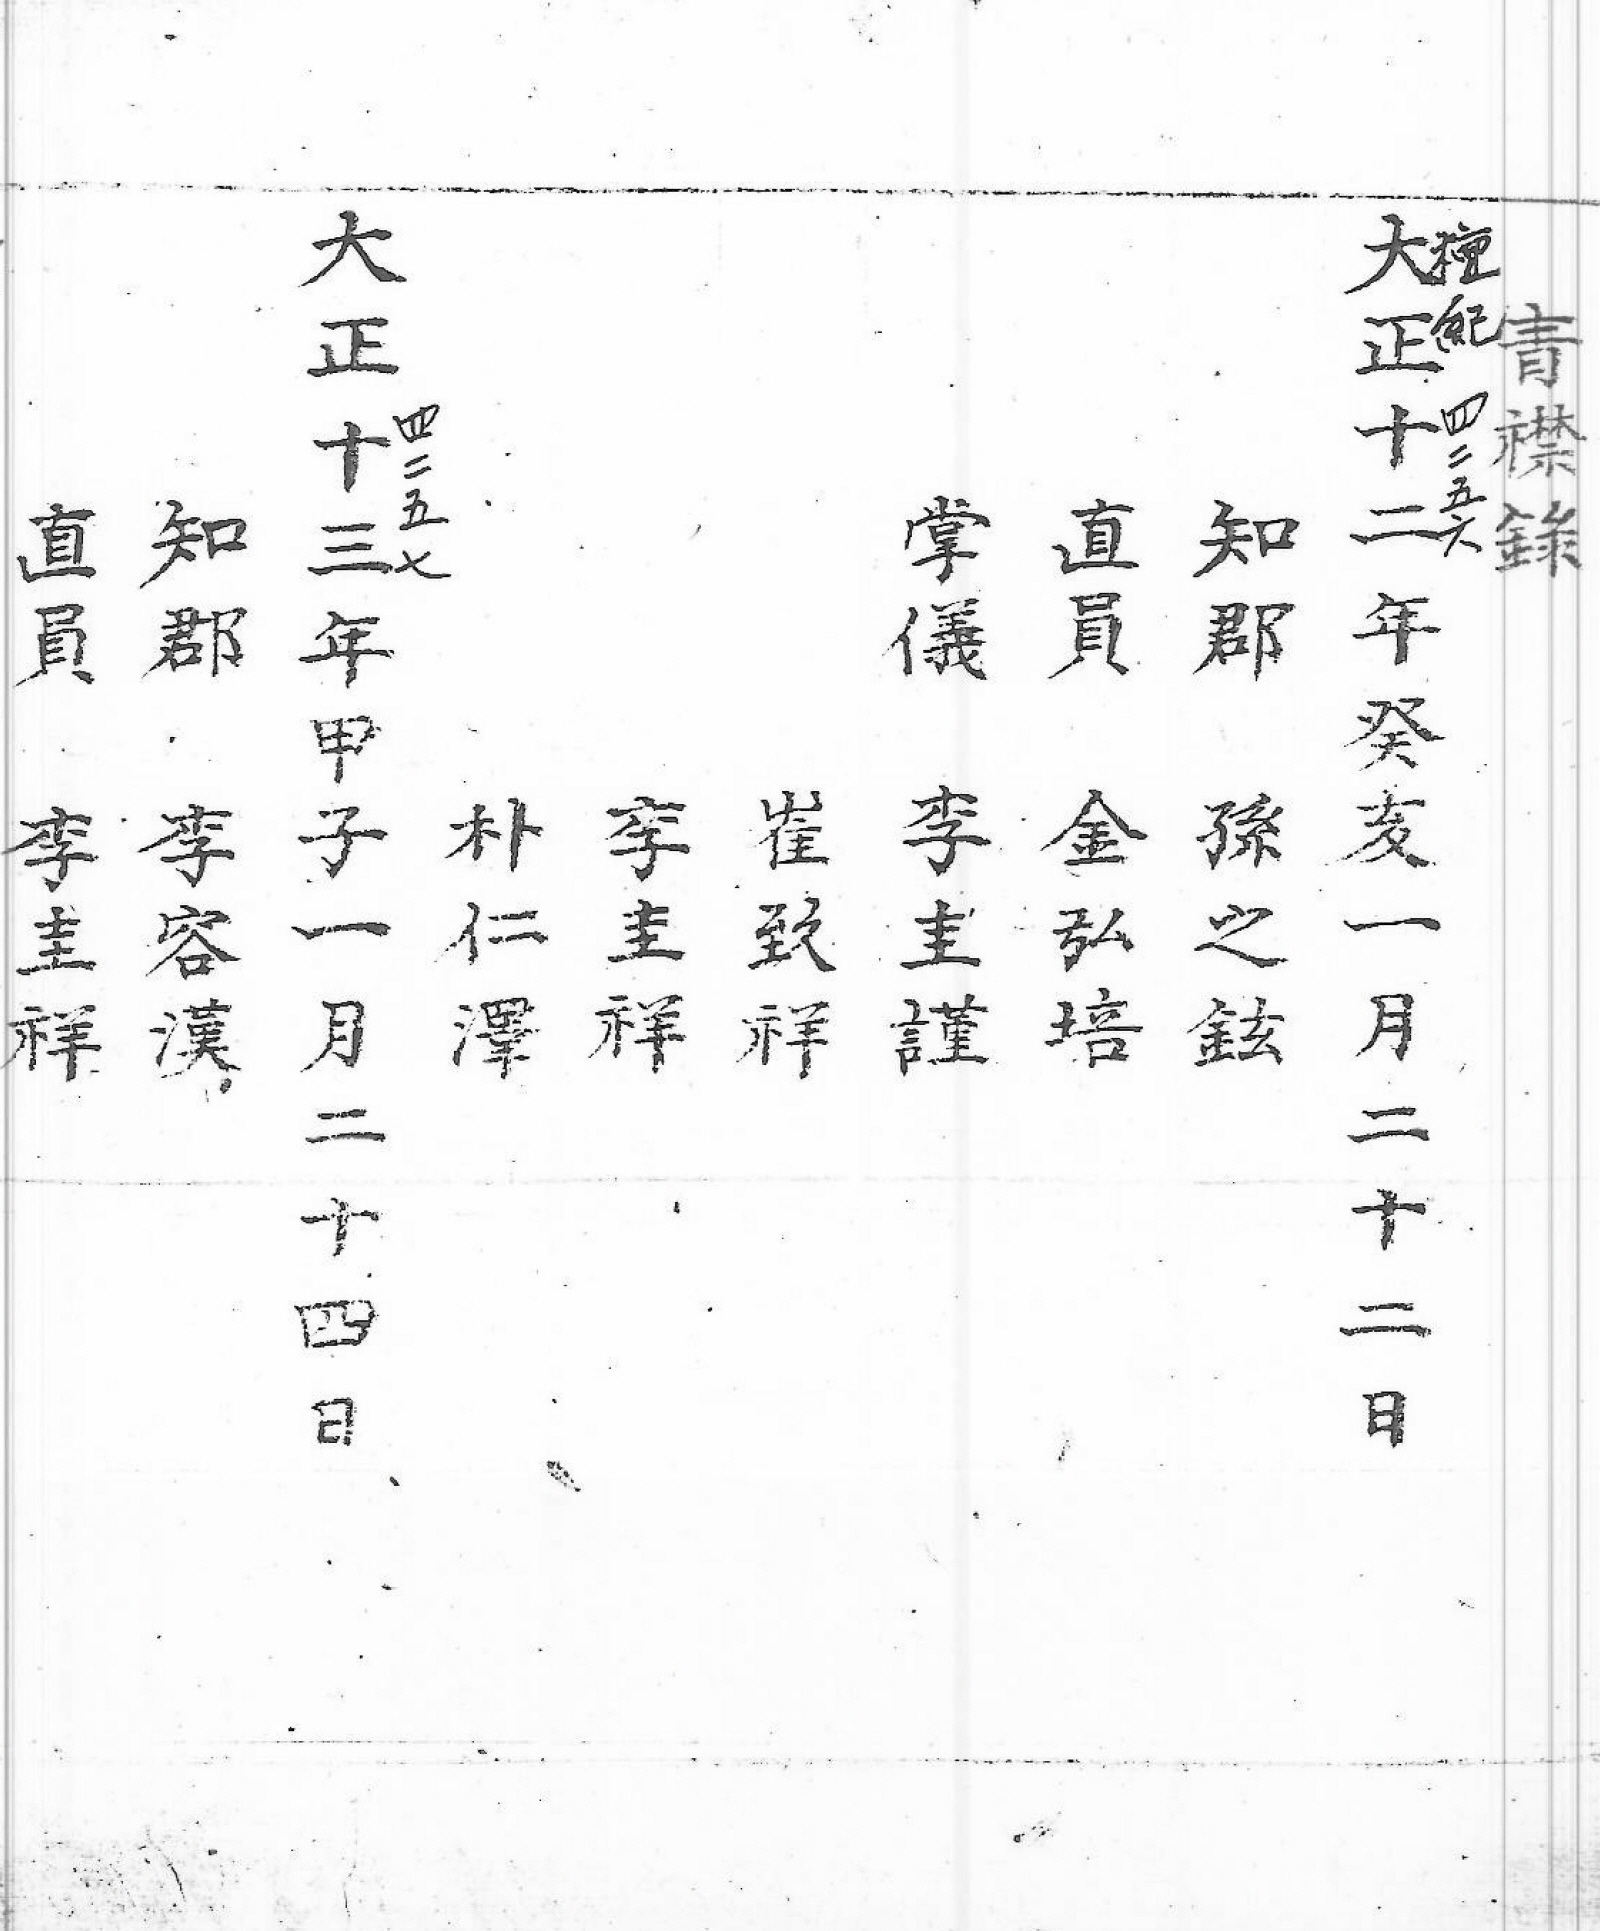 青襟錄
檀紀 四二五六
大正十二年癸亥一月二十二日
知郡 孫之鉉
直員 金弘培
掌儀 李圭謹
崔致祥
李圭祥
朴仁澤
四二五七
大正十三年甲子一月二十四日
知郡 李容漢
直員 李圭祥